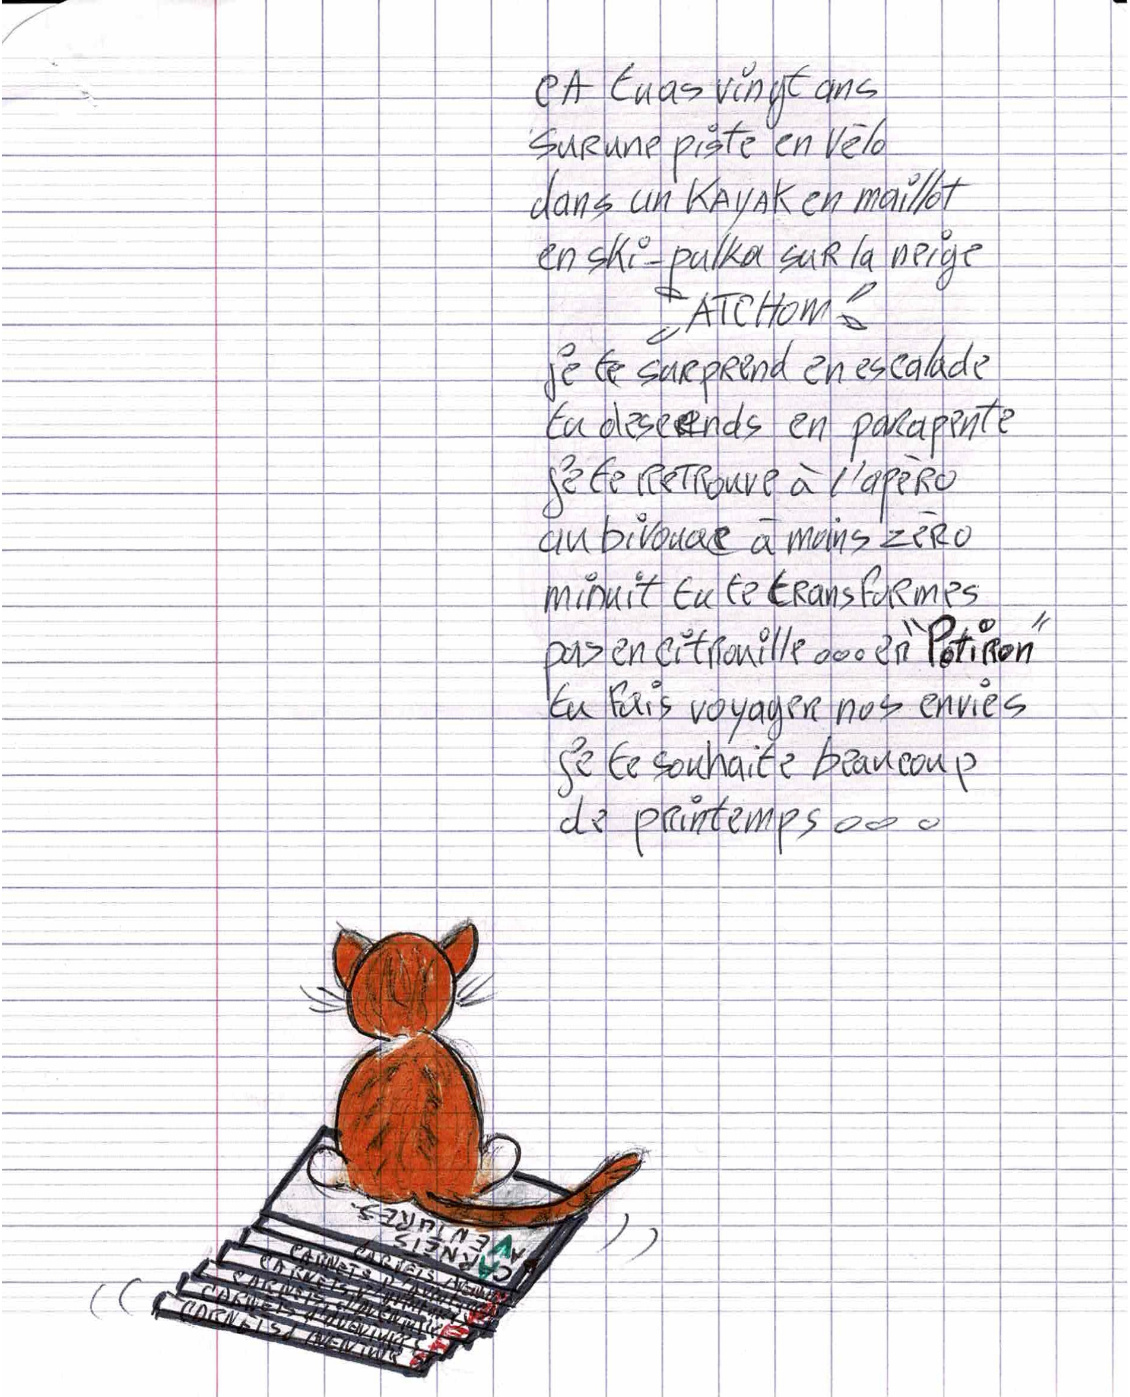 CA tu as vingt ans
sur une piste en vélo
dans un KAYAK en maillot
en ski-pulka sur la neige
ATCHOM!
je te surprend en escalade
tu descends en parapente
je te retrouve à l'apèro
au bivouac à moins zéro
minuit tu te transformes
pas en citrouille ... en "Potiron"
tu fais voyager nos envies
je te souhaite beaucoup
de printemps ...
CARNETS
AVENTURES
CARNETS
CARNETS D'
CARNETS
CARNETS D'AVENTURES
CARNETS D'AVENTURES
CARNETS